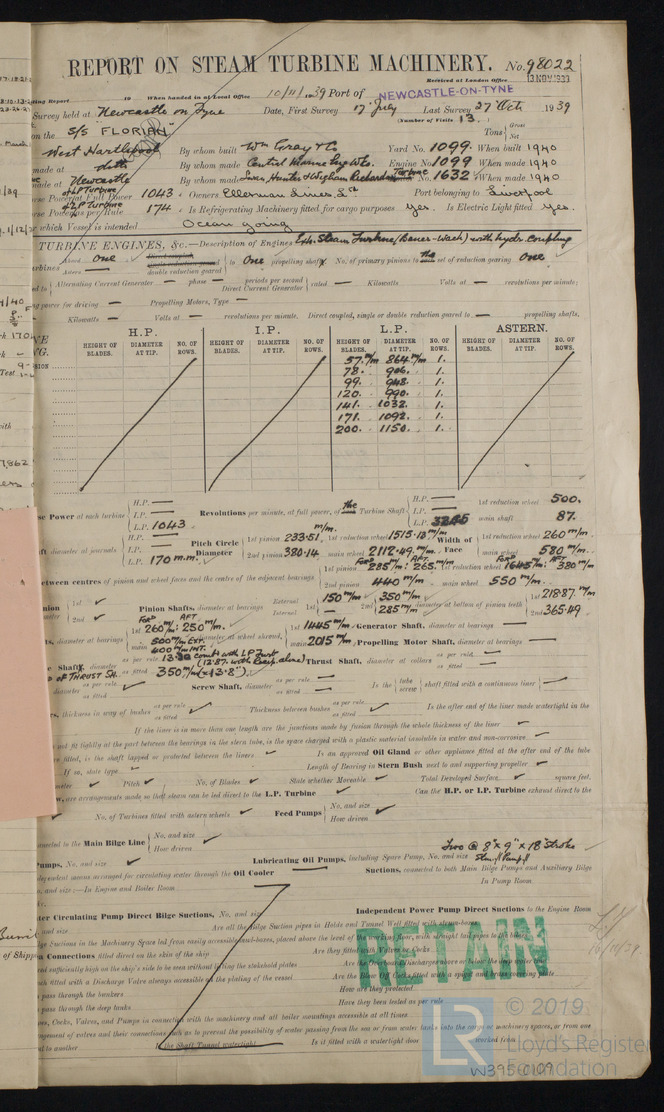 REPORT ON STEAM TURBINE MACHINERY. No. 98022
Received at London Office 13 NOV 1939
When handed in at Local Office 10/11/1939 Port of NEWCASTLE-ON-TYNE
Survey held at Newcastle on Tyne Date, First Survey 17 July Last Survey 27 Oct 1939
(Number of Visits 13.)
on the S/S FLORIAN. Tons Gross Net
West Hartlepool By whom built Wm Gray & Co Yard No. 1099. When built 1940
ditto By whom made Central Marine Eng Wks. Engine No 1099 When made 1940
made at Newcastle By whom made Swan Hunter & Wigham Richardson Turbine No. 1632 When made 1940
Full Power 1043 Owners Ellerman Lines Ld Port belonging to Liverpool
per Rule 174 Is Refrigerating Machinery fitted for cargo purposes yes. Is Electric Light fitted yes.
which Vessel is intended Ocean going
TURBINE ENGINES, &c.—Description of Engines Exh. Steam Turbine (Bauer-Wach) with hydr. coupling
Ahead one Direct coupled, single reduction geared double reduction geared to one propelling shaft. No. of primary pinions to the set of reduction gearing one
Astern —
Alternating Current Generator — phase — periods per second Direct Current Generator rated — Kilowatts Volts at — revolutions per minute;
power for driving — Propelling Motors, Type —
Kilowatts — Volts at — revolutions per minute. Direct coupled, single or double reduction geared to — propelling shafts.
H.P. I.P. L.P. ASTERN.
HEIGHT OF BLADES. DIAMETER AT TIP. NO. OF ROWS. HEIGHT OF BLADES. DIAMETER AT TIP. NO. OF ROWS. HEIGHT OF BLADES. DIAMETER AT TIP. NO. OF ROWS. HEIGHT OF BLADES. DIAMETER AT TIP. NO. OF ROWS.
57. m/m 864. m/m 1.
78. 906. 1.
99. 948. 1.
120. 990. 1.
141. 1032. 1.
171. 1092. 1.
200. 1150. 1.
Power at each turbine H.P. — I.P. — L.P. 1043 Revolutions per minute, at full power, of the Turbine Shaft H.P. — I.P. — L.P. 3245 1st reduction wheel 500. main shaft 87.
diameter at journals H.P. — I.P. — L.P. 170 m.m. Pitch Circle Diameter 1st pinion 233.51 m/m. 2nd pinion 380.14 1st reduction wheel 1515.18 m/m main wheel 2112.49 m/m. Width of Face 1st reduction wheel 260 m/m main wheel 580 m/m.
between centres of pinion and wheel faces and the centre of the adjacent bearings 1st pinion For'd 285 m/m: Aft 265. 1st reduction wheel For'd 1645 m/m: Aft 380 m/m
2nd pinion 440 m/m main wheel 550 m/m.
1st 2nd Pinion Shafts, diameter at bearings External 1st 150 m/m 2nd 350 m/m Internal 1st — 2nd 285 m/m diameter at bottom of pinion teeth 1st 218.87 m/m 2nd 365.49
diameter at bearings 1st For'd 260 m/m: Aft 250 m/m. main 500 m/m Ext. 400 m/m Int. diameter at wheel shroud, 1st 1445 m/m main 2015 m/m Generator Shaft, diameter at bearings —
Propelling Motor Shaft, diameter at bearings —
as per rule 13.30 comb with L.P Turb (12.87. with Recip. alone) as fitted 350 m/m (= 13.8"). Thrust Shaft, diameter at collars as per rule — as fitted —
of THRUST SH.
diameter as per rule as fitted Screw Shaft, diameter as per rule — as fitted — Is the tube screw shaft fitted with a continuous liner
thickness in way of bushes as per rule as fitted Thickness between bushes as per rule as fitted Is the after end of the liner made watertight in the
If the liner is in more than one length are the junctions made by fusion through the whole thickness of the liner
not fit tightly at the part between the bearings in the stern tube, is the space charged with a plastic material insoluble in water and non-corrosive
are fitted, is the shaft lapped or protected between the liners Is an approved Oil Gland or other appliance fitted at the after end of the tube
If so, state type Length of Bearing in Stern Bush next to and supporting propeller
Pitch No. of Blades State whether Moveable Total Developed Surface square feet.
are arrangements made so that steam can be led direct to the L.P. Turbine Can the H.P. or I.P. Turbine exhaust direct to the
No. of Turbines fitted with astern wheels Feed Pumps No. and size How driven
connected to the Main Bilge Line No. and size How driven
Two @ 8" x 9" x 18" Stroke
Pumps, No. and size Lubricating Oil Pumps, including Spare Pump, No. and size
independent means arranged for circulating water through the Oil Cooler — Suctions, connected to both Main Bilge Pumps and Auxiliary Bilge
and size:—In Engine and Boiler Room In Pump Room
Circulating Pump Direct Bilge Suctions, No. and size Independent Power Pump Direct Suctions to the Engine Room
and size Are all the Bilge Suction pipes in Holds and Tunnel Well fitted with strum-boxes
Bilge Suctions in the Machinery Space led from easily accessible mud-boxes, placed above the level of the working floor, with straight tail pipes to the bilges
Connections fitted direct on the skin of the ship Are they fitted with Valves or Cocks
sufficiently high on the ship's side to be seen without lifting the stokehold plates Are the Overboard Discharges above or below the deep water line
fitted with a Discharge Valve always accessible on the plating of the vessel Are the Blow Off Cocks fitted with a spigot and brass covering plate
pass through the bunkers How are they protected
pass through the deep tanks Have they been tested as per rule
Cocks, Valves, and Pumps in connection with the machinery and all boiler mountings accessible at all times
arrangement of valves and their connections such as to prevent the possibility of water passing from the sea or from water tanks into the cargo or machinery spaces, or from one
to another Is the Shaft Tunnel watertight Is it fitted with a watertight door worked from
RETAIN
© 2019
LR
Lloyd's Register
Foundation
W395-0109